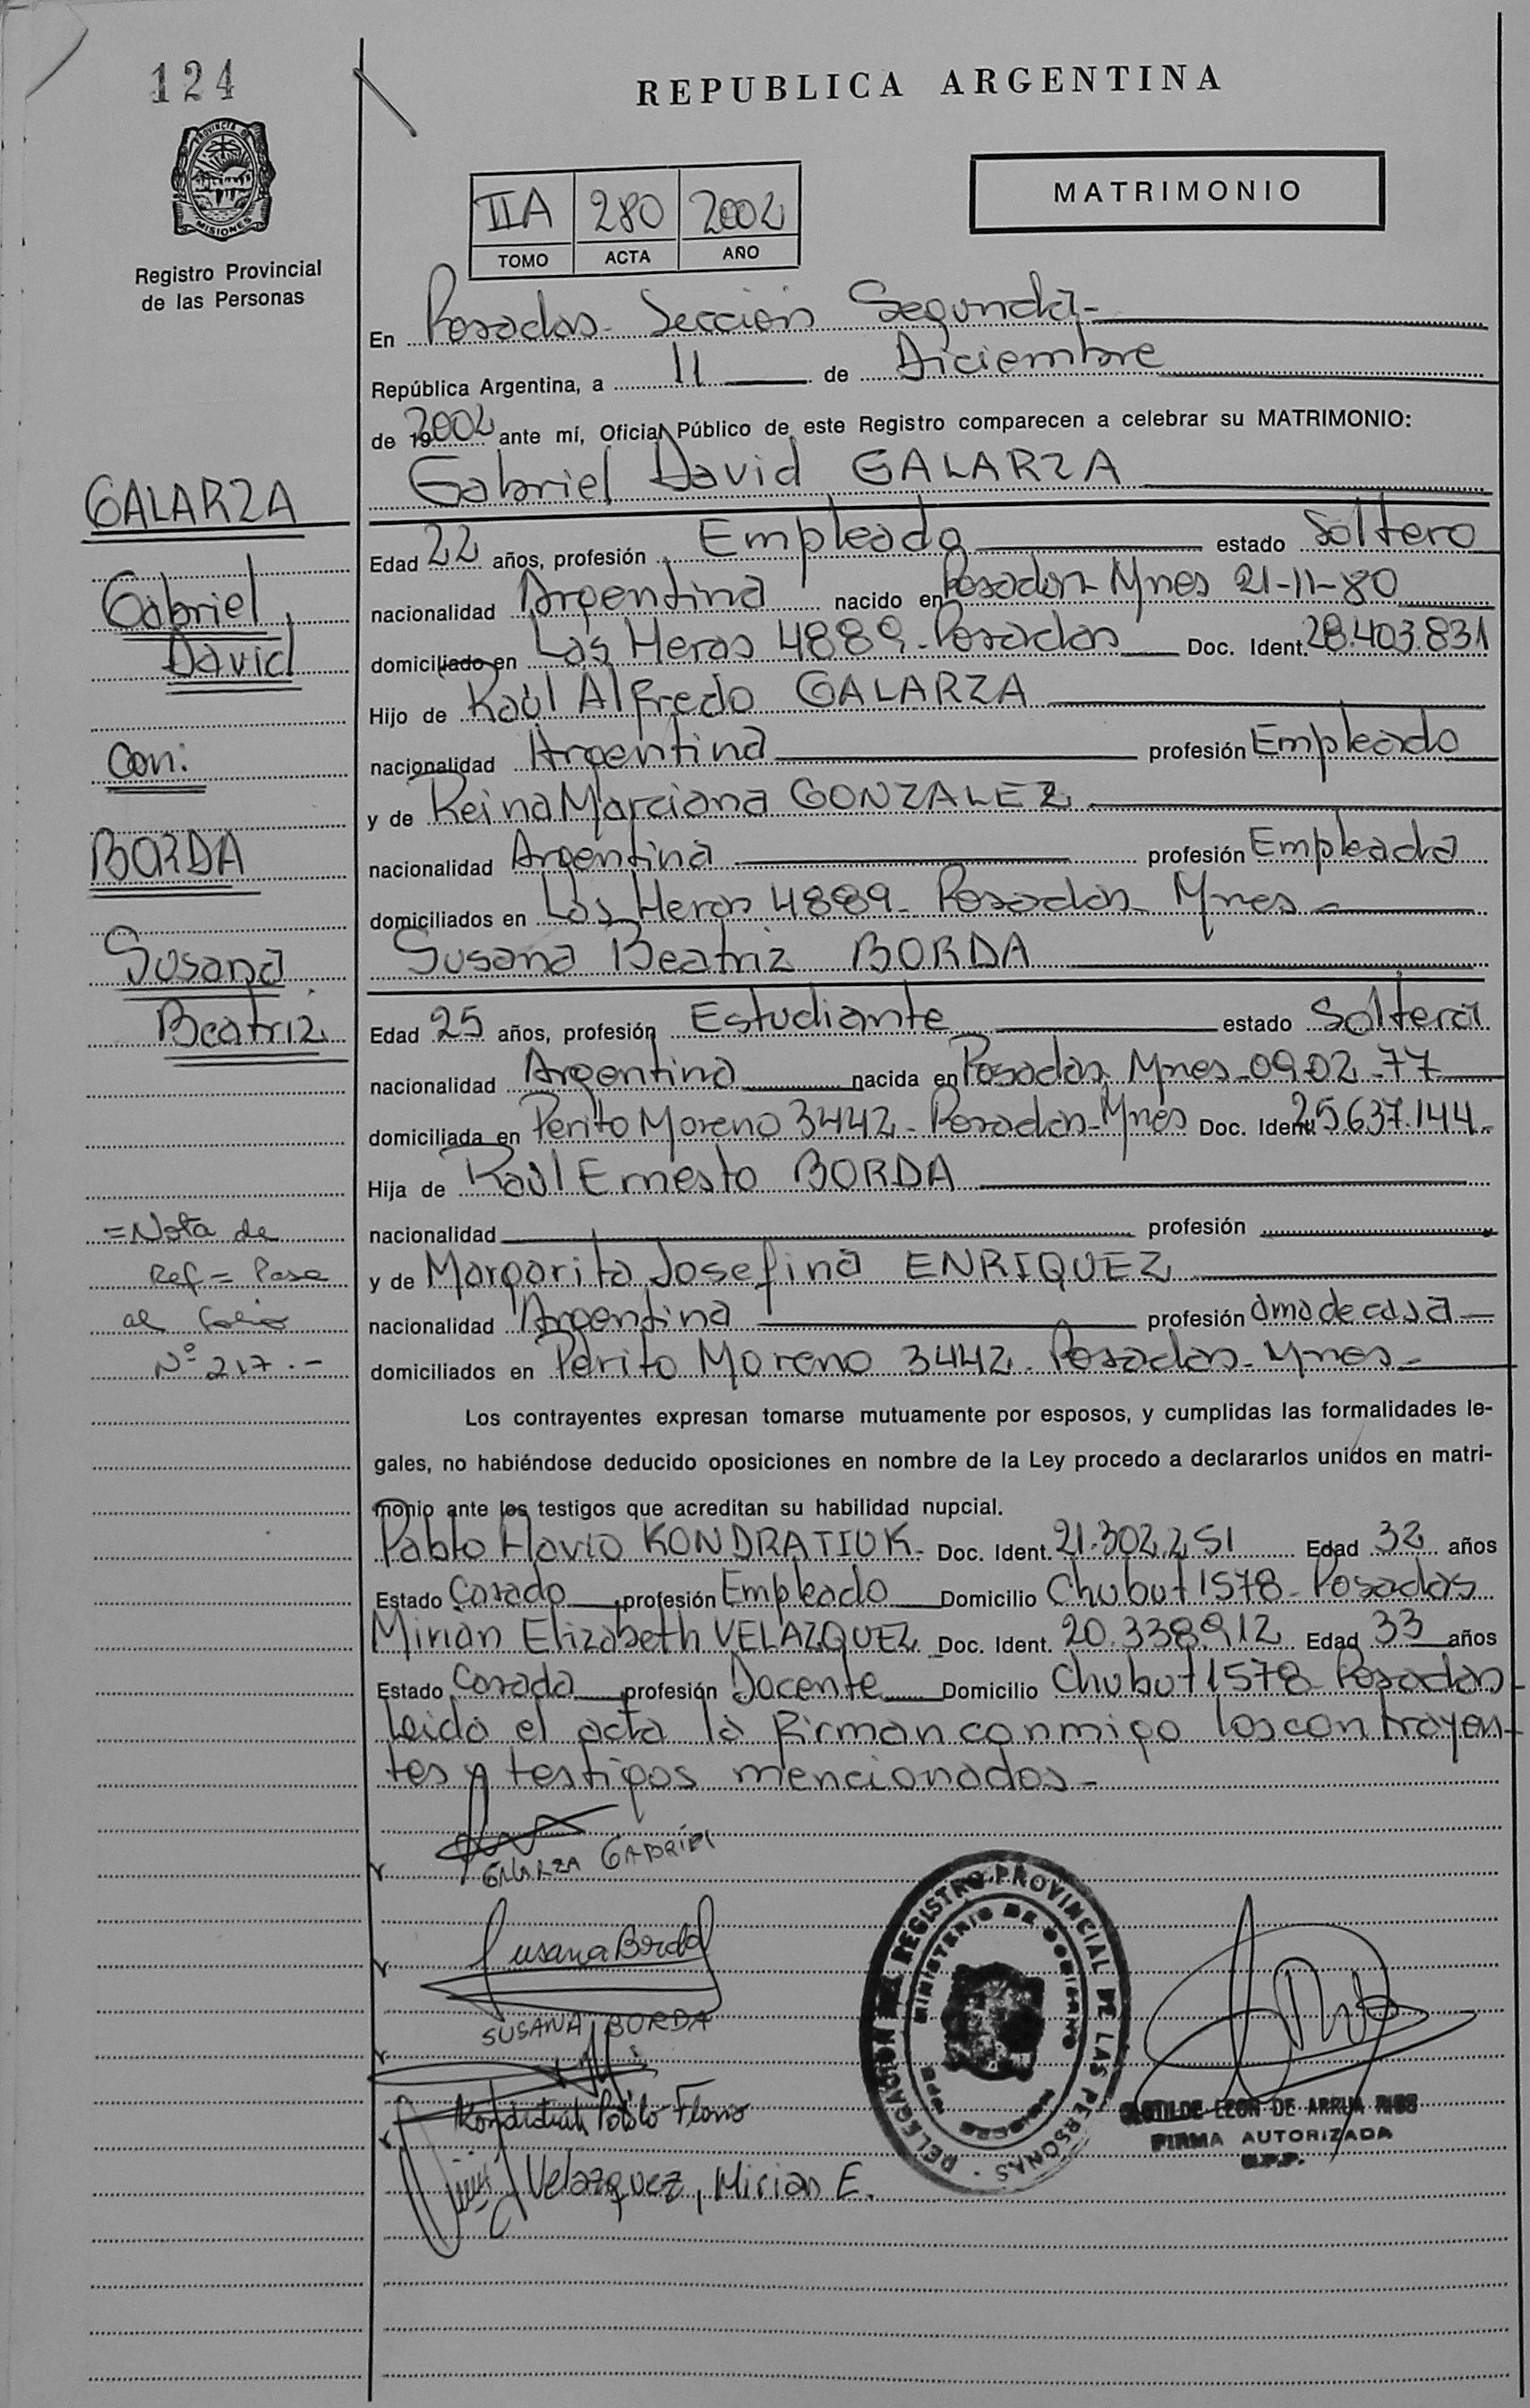 124
REPUBLICA ARGENTINA
PROVINCIA DE
MISIONES
Registro Provincial
de las Personas
IIA 280 2002
TOMO ACTA AÑO
MATRIMONIO
En Posadas- Sección Segunda-
República Argentina, a 11 de Diciembre
de 19 2002 ante mí, Oficial Público de este Registro comparecen a celebrar su MATRIMONIO:
Gabriel David GALARZA
Edad 22 años, profesión Empleado estado Soltero
nacionalidad Argentina nacido en Posadas- Mnes 21-11-80
domiciliado en Las Heras 4889-Posadas Doc. Ident. 28.403.831
Hijo de Raúl Alfredo GALARZA
nacionalidad Argentina profesión Empleado
y de Reina Marciana GONZALEZ
nacionalidad Argentina profesión Empleada
domiciliados en Las Heras 4889- Posadas- Mnes-
Susana Beatriz BORDA
Edad 25 años, profesión Estudiante estado Soltera
nacionalidad Argentina nacida en Posadas Mnes-09-02-77
domiciliada en Perito Moreno 3442- Posadas-Mnes Doc. Ident. 25.637.144-
Hija de Raúl Ernesto BORDA
nacionalidad profesión
y de Margarita Josefina ENRIQUEZ
nacionalidad Argentina profesión ama de casa-
domiciliados en Perito Moreno 3442- Posadas- Mnes-
GALARZA
Gabriel
David
Con:
BORDA
Susana
Beatriz
=Nota de
Ref= Pase
al folio
N° 217.-
Los contrayentes expresan tomarse mutuamente por esposos, y cumplidas las formalidades le-
gales, no habiéndose deducido oposiciones en nombre de la Ley procedo a declararlos unidos en matri-
monio ante los testigos que acreditan su habilidad nupcial.
Pablo Flavio KONDRATIUK- Doc. Ident. 21.302.251 Edad 32 años
Estado Casado profesión Empleado Domicilio Chubut 1578- Posadas
Mirian Elizabeth VELAZQUEZ Doc. Ident. 20.338.912 Edad 33 años
Estado Casada profesión Docente Domicilio Chubut 1578- Posadas
Leida el acta la firman conmigo los contrayen-
tes y testigos mencionados-
GALARZA GABRIEL
Susana Borda
SUSANA BORDA
Kondratiuk Pablo Flavio
Velazquez, Mirian E.
DELEGACION DEL REGISTRO PROVINCIAL DE LAS PERSONAS
MINISTERIO DE GOBIERNO
CLOTILDE LEON DE ARRUA
FIRMA AUTORIZADA
R.P.P.